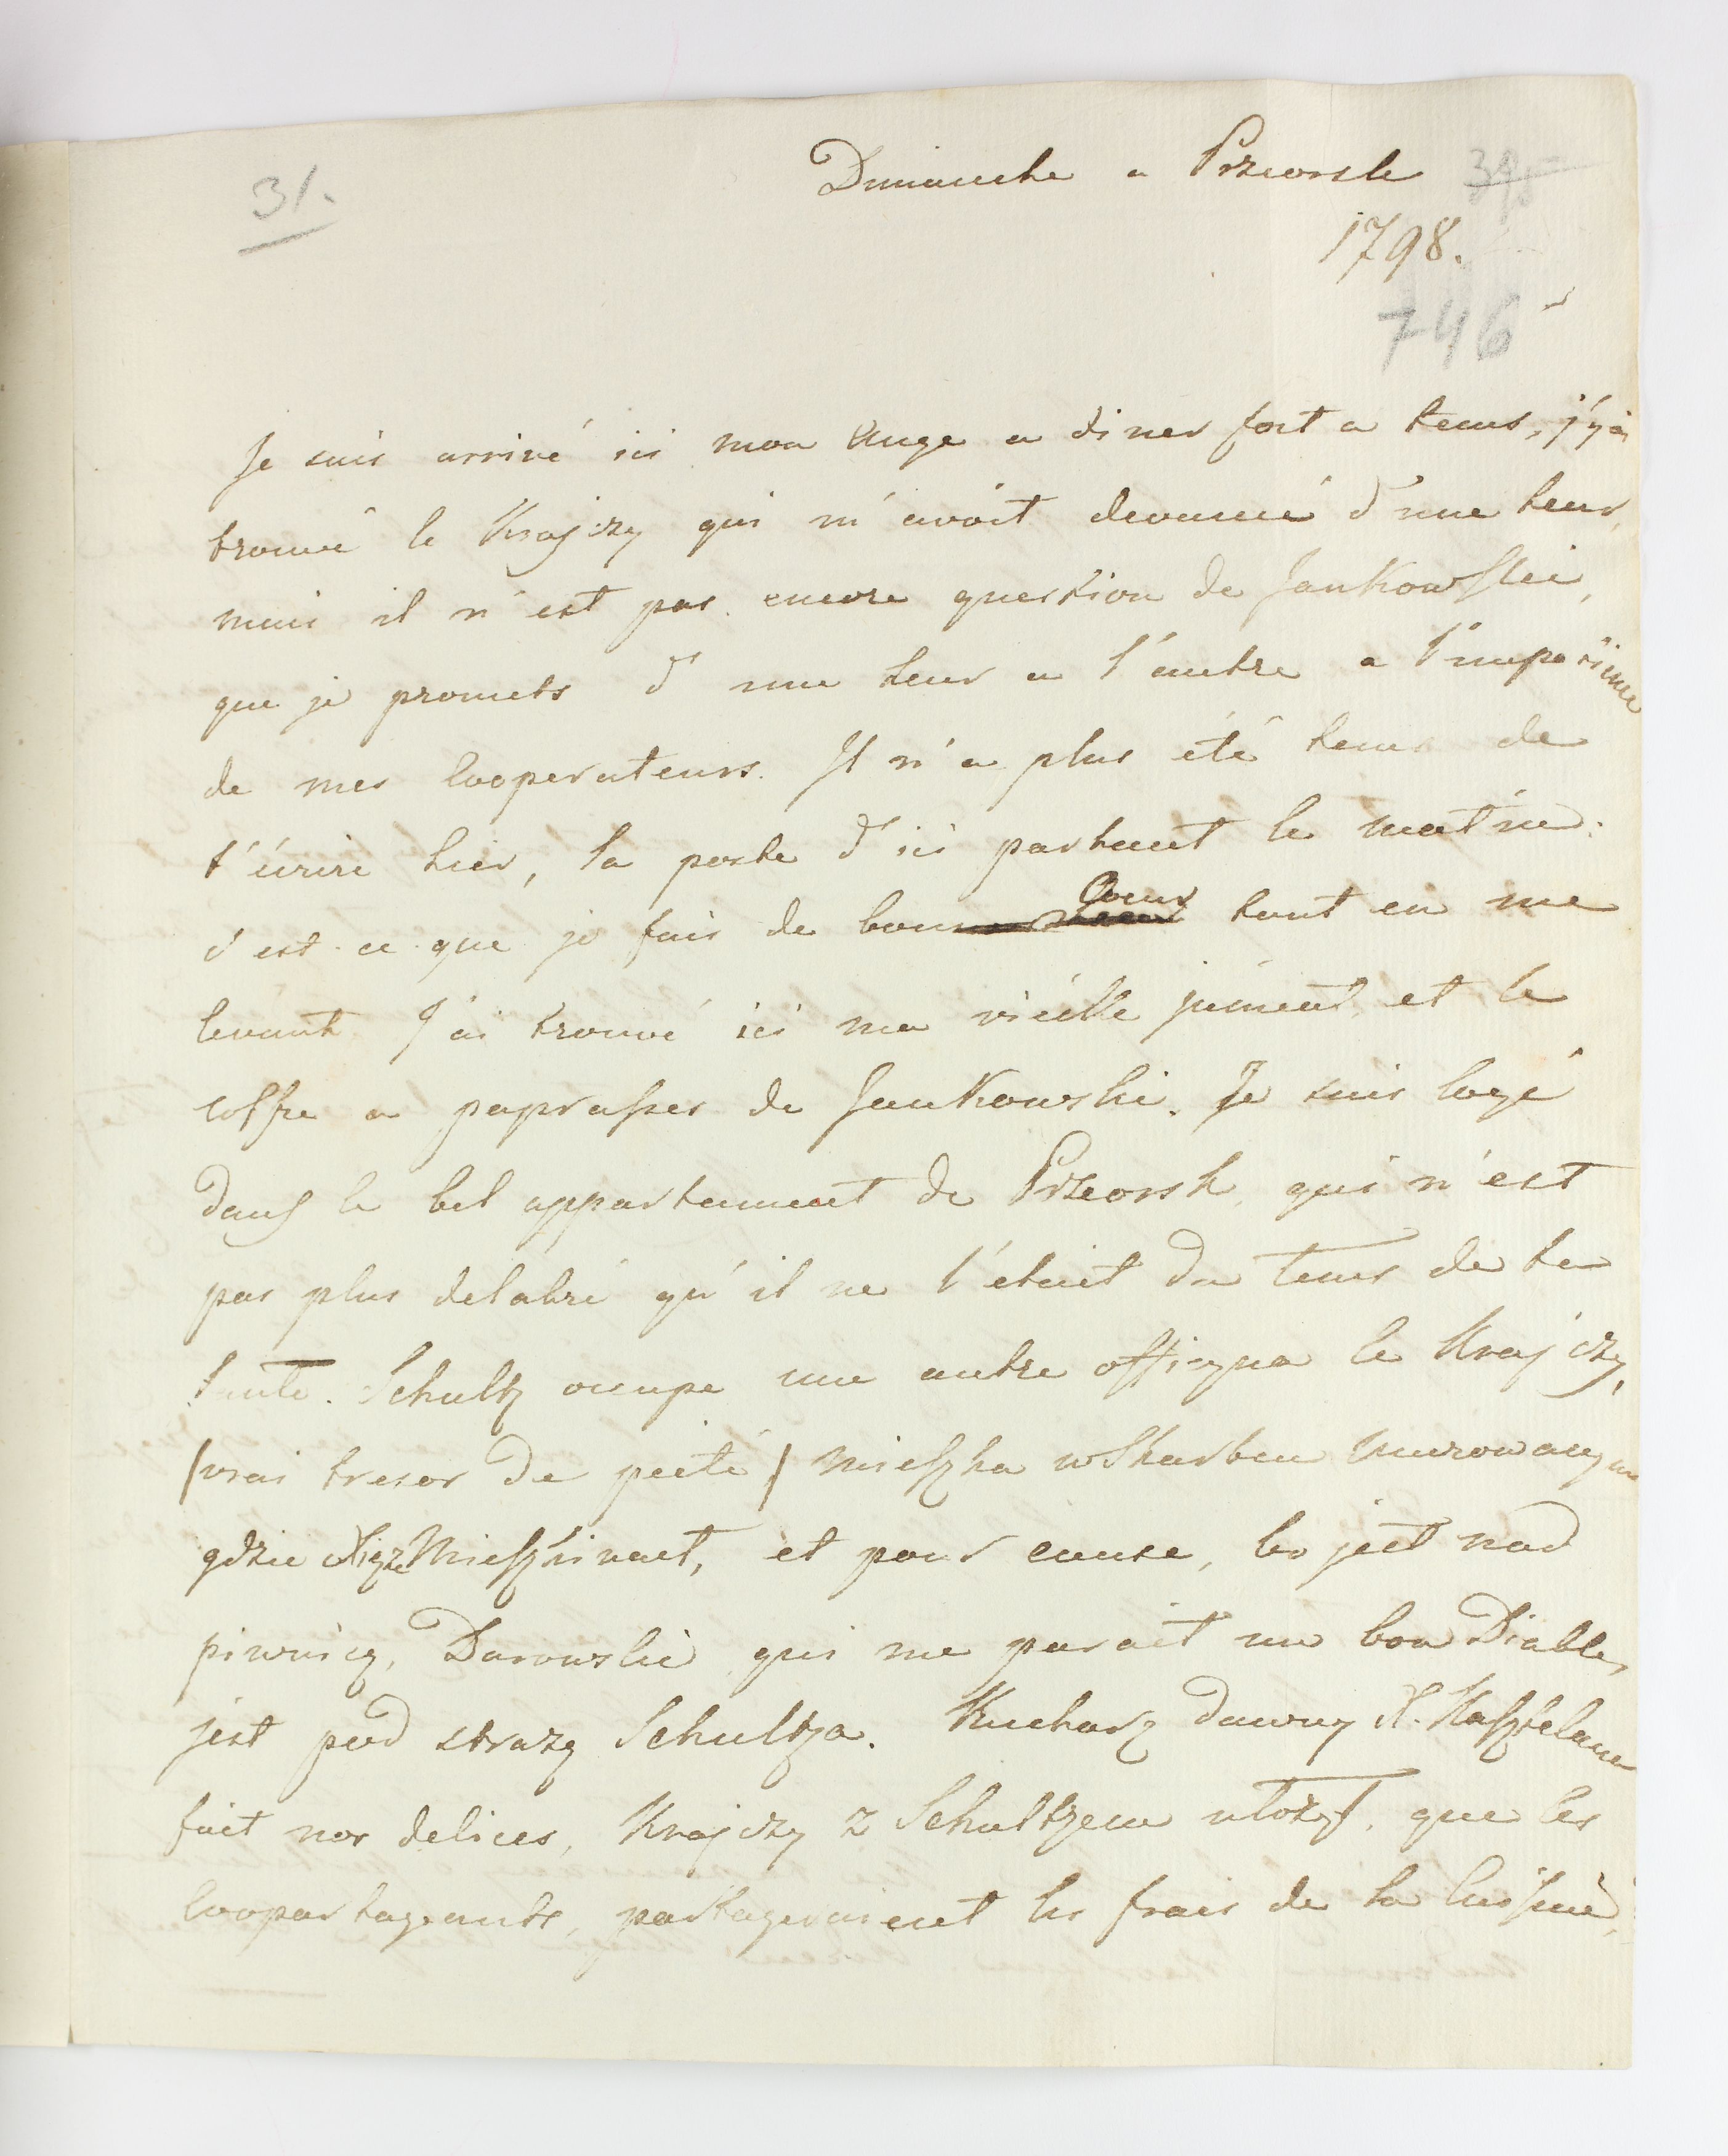 31.
Dimanche a Przeorsk 395
1798.
746
Je suis arrivé ici mon Ange a diner fort a tems, j'y ai
trouvé le Krajczy qui m'avoit devancé d'une heur,
mais il n'est pas encore question de Jankowski,
que je promets d'une heur a l'autre a l'impatience
de mes Cooperateurs. Il n'a plus été tems de
t'écrire hier, la poste d'ici partant le matin.
c'est ce que je fais de bon Coeur tout en me
levant J'ai trouvé ici ma vieille jument et le
coffre a paprasses de Jankowski. Je suis logé
dans le bel appartement de Przeorsk, qui n'est
pas plus delabré qu'il ne l'etait du tems de ta
tante. Schultz occupe une autre officyna le Krajczy,
(vrai tresor de pieté) mieszka w Skarbcu murowanym
gdzie Xiąże Mieszkiwał, et pour cause, bo jest nad
piwnicą, Darowski qui me parait un bon Diable,
jest pod strażą Schultza. Kucharz dawny X. Kasztelana
fait nos delices, Krajczy z Schultzem ułożył, que les
Coopartageants, partageraient les frais de la Cuisine,